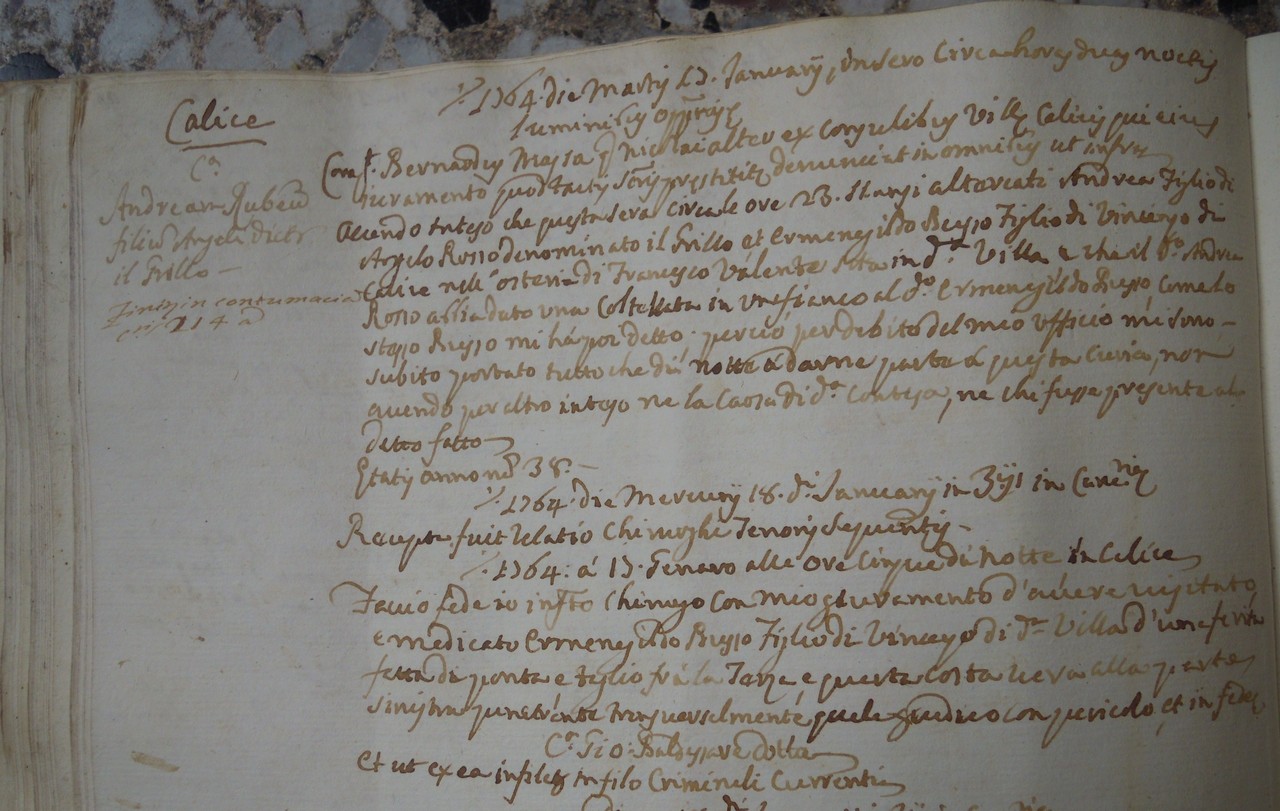 Calice
C.a
Andream Rubeum
filium Angeli dict.
il Grillo
finis in contumacia
214
1764. die Martis 17. Januarij, in sero Circa horas duas noctis
luminibus
Comp.t Bernardus Massa q. Nicolai alter ex Consulibus Villæ Calicis qui eius
iuramento quod tactis prestitit denunciat in omnibus ut infra
Avendo inteso che questa sera circa le ore 23. siansi altercati Andrea figlio di
Angelo Rosso denominato il Grillo et Ermenegildo Russo figlio di Vincenzo di
Calice nell'osteria di Francesco Valente sita in d.a Villa e che il d.o Andrea
Rosso abbia dato una Coltellata in un fianco al d.o Ermenegildo Russo, come lo
stesso Russo mi há poi detto; perciò per debito del mio Ufficio mi sono
subito portato tutto che di notte á darne parte á questa Curia, non
avendo per altro inteso ne la Causa di d.a Contesa, ne chi fusse presente al
detto fatto
Etatis annorum 38.
1764. die Mercurij 18. d.i Januarij in 3.ijs in Canc.
Recepta fuit relatio Chirurghi Tenoris Sequentis
1764. á 17. Genaro alle Ore Cinque di Notte in Calice
Faccio fede io infr.to Chirurgo con mio giuramento d'avere visitato
e medicato Ermenegildo Russo figlio di Vincenzo di d.a Villa d'una ferita
fatta di ponta e taglio frá la Terza, e quarta Costa vera alla parte
sinistra penetrante trasversalmente, quale giudico con pericolo, et in fede
Gio: Baldassare Cotta
Et ut ex ea in filo Criminali Currenti